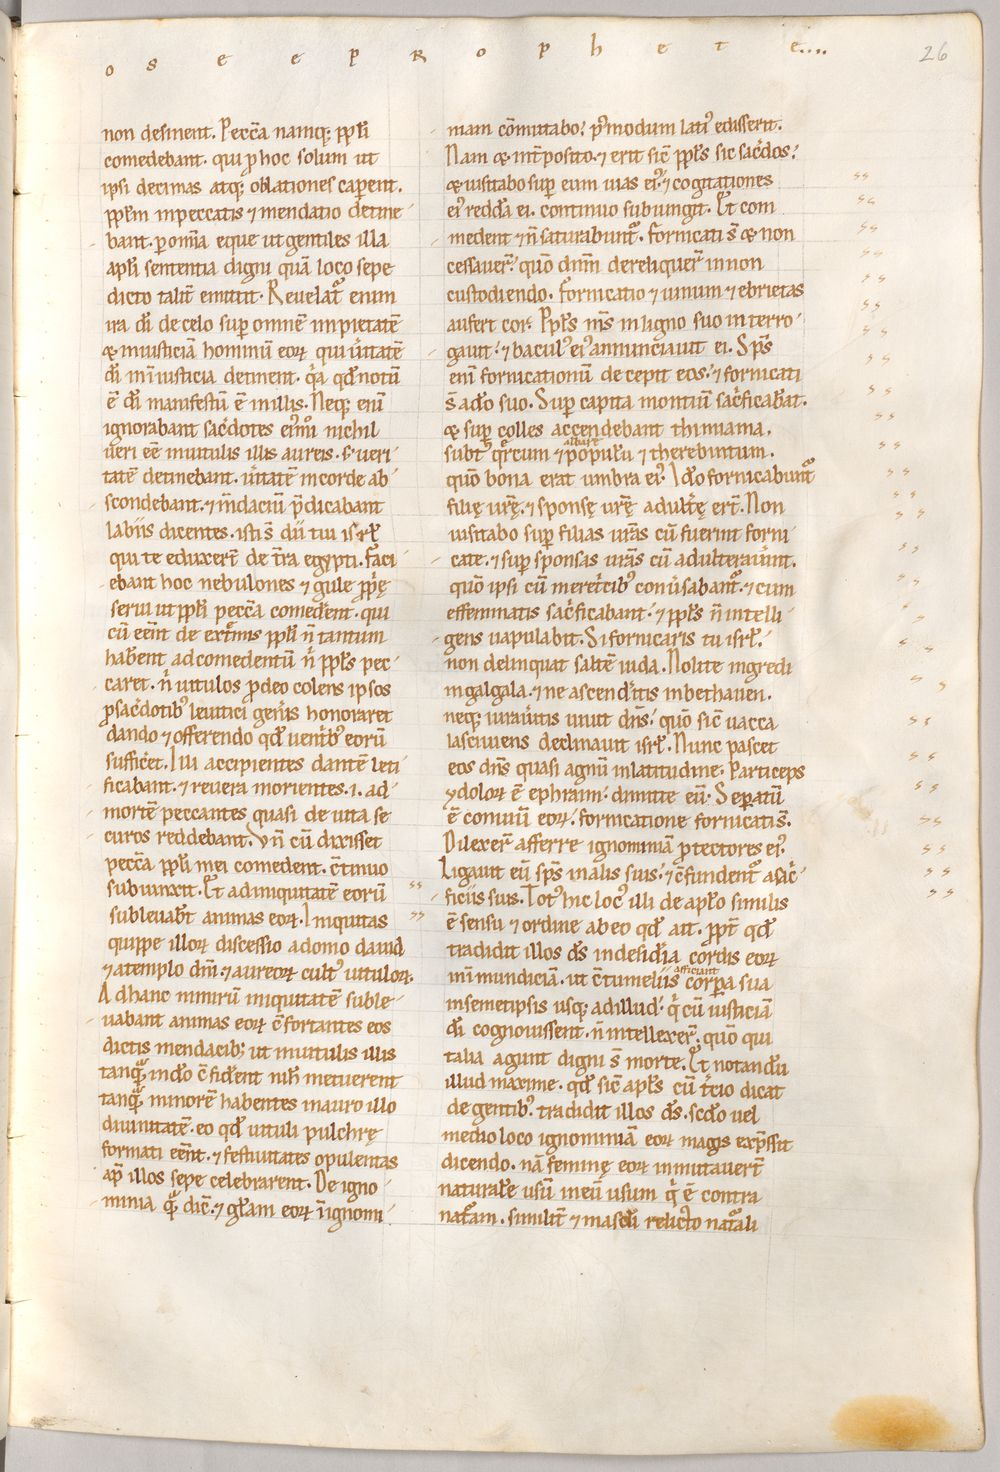 o s e e p R o p h e t e....
26
non desinent. Peccā namq; ppl̄i
comedebant. qui ꝓ hoc solum ut
ipsi decimas atq; oblationes caperent.
pplm̄ inpeccatis ⁊ mendatio detine
bant. ꝑ om̄ia eque ut gentiles illa
apl̄i sententia digni quā loco sepe
dicto talit̄ emittit. Reuelat᷑ enim
ira dī de celo sup̄ omnē impietatē
& iniusticiā hominū eoꝝ qui ūitatē
dī in īiusticia detinent. q̄a qd̄ notū
ē dī manifestū ē in illis. Neq; enī
ignorabant sac̄dotes eim̄i nichil
ūeri eē inuitulis illis aureis. s; ueri
tatē detinebant. ūitatē incorde ab
scondebant. ⁊ m̄daciū p̄dicabant
labiis dicentes. isti s̄ dii tui isrl̄
qui te eduxert̄ de t̄ra egypti. Faci
ebant hoc nebulones ⁊ gule ppr̄ę
serui ut ppl̄i peccā comederent. qui
cū eēnt de ext̄mis ppl̄i n̄ tantum
haberent ad comedentū n̄ ppl̄s pec
caret. n̄ uitulos ꝓ deo colens ipsos
ꝓ sac̄dotibꝰ leuitici geñis honoraret
dando ⁊ offerendo qd̄ uent̄bꝰ eorū
sufficeret. Illi accipientes dantē leti
ficabant. ⁊ reuera morientes .i. ad
mortē peccantes quasi de uita se
curos reddebant. Vn̄ cū dixisset
peccā ppl̄i mei comedent. c̄tinuo
subiunxit. Et ad iniquitatē eorū
subleuabt̄ animas eoꝝ. Iniquitas
quippe illoꝝ discessio adomo dauid
⁊ a templo dnī. ⁊ aureoꝝ cultꝰ uituloꝝ.
Ad hanc nimirū iniquitatē suble
uabant animas eoꝝ c̄fortantes eos
dictis mendacib; ut inuitulis illis
tanq̄ in dō c̄fiderent nih̄ metuerent
tanq̄ minorē habentes in auro illo
diuinitatē. eo qd̄ uituli pulchrę
formati eēnt. ⁊ festiuitates opulentas
ap̄ illos sepe celebrarent. De igno
minia q̄ dic̄. ⁊ glām eoꝝ ī ignomi
niam cōmutabo. p̄modum latiꝰ edisserit.
Nam & int̄posito. ⁊ erit sic̄ ppl̄s sic sac̄dos.
& uisitabo sup̄ eum uias eiꝰ. ⁊ cogitationes
eiꝰ reddā ei. continuo subiungit. Et com
medent ⁊ n̄ saturabunt᷑. fornicati s̄ & non
cessauer̄. quō dnm̄ dereliquer̄ in non
custodiendo. Fornicatio ⁊ uinum ⁊ ebrietas
aufert cor. Ppl̄s mꝰ in ligno suo interro
gauit. ⁊ baculꝰ eiꝰ annunciauit ei. Sps̄
enī fornicationū decepit eos. ⁊ fornicati
s̄ a dō suo. Sup̄ capita montiū sac̄ficabāt.
& sup̄ colles accendebant thimiama.
subtꝰ q̄rcum ⁊ populū ⁊ therebintum.
quō bona erat umbra eiꝰ. Idō fornicabunt᷑
filię ur̄ę. ⁊ sponsę ur̄ę adult̄ę ert̄. Non
uisitabo sup̄ filias ur̄as cū fuerint forni
cate. ⁊ sup̄ sponsas ur̄as cū adulterauīnt.
quō ipsi cū meret̄cibꝰ conūsabant᷑. ⁊ cum
effeminatis sac̄ficabant. ⁊ ppl̄s n̄ intelli
gens uapulabit. Si fornicaris tu isrl̄.
non delinquat saltē iuda. Nolite ingredi
in galgala. ⁊ ne ascend̄itis in bethauen.
neq; iurau̅itis uiuit dn̄s. quō sic̄ uacca
lasciuiens declinauit isrl̄. Nunc pascet
eos dn̄s quasi agnū in latitudine. Particeps
ydoloꝝ ē ephraim. dimitte eū. Separatū
ē conuiū eoꝝ. fornicatione fornicati s̄.
Dilexer̄ afferre ignominiā ꝓtectores eiꝰ.
Ligauit eū sps̄ in alis suis. ⁊ c̄fundent᷑ a sac̄
ficiis suis. Totꝰ hic locꝰ illi de apl̄o similis
ē sensu ⁊ ordine ab eo qd̄ ait. ppt̄ qd̄
tradidit illos dꝰ in desid̄ia cordis eoꝝ
in īmundiciā. ut c̄tumeliis afficiant corpora sua
in semetipsis usq; ad illud. q̄ cū iusticiā
dī cognouissent. n̄ intellexer̄. quō qui
talia agunt digni s̄ morte. Et notandū
illud maxime. qd̄ sic̄ apl̄s cū t̄cio dicat
de gentibꝰ. tradidit illos dꝰ. scd̄o uel
medio loco ignominiā eoꝝ magis exp̄ssit
dicendo. nā feminę eoꝝ inmutauert̄
naturalē usū in eū usum q̄ ē contra
nat᷑am. similit̄ ⁊ masc̄li relicto nat᷑ali